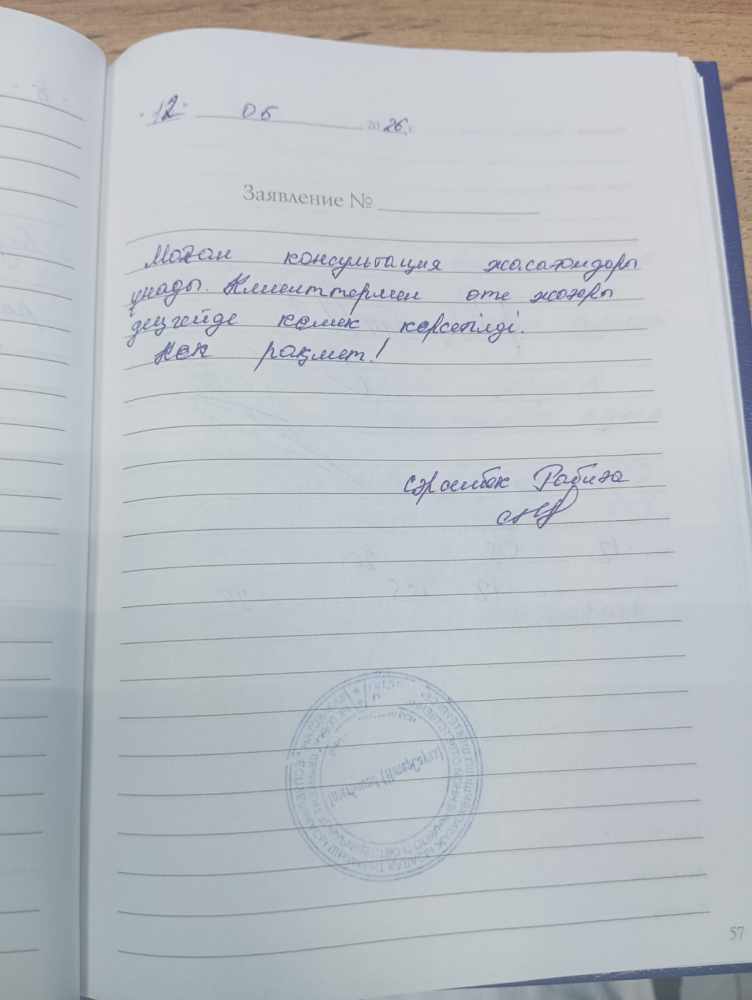 "12" 06 2026 г.
Заявление №
Маған консультация жасағандары
ұнады. Клиенттермен өте жоғары
деңгейде көмек көрсетілді.
Көп рақмет!
Сәрсенбек Рабиға
57